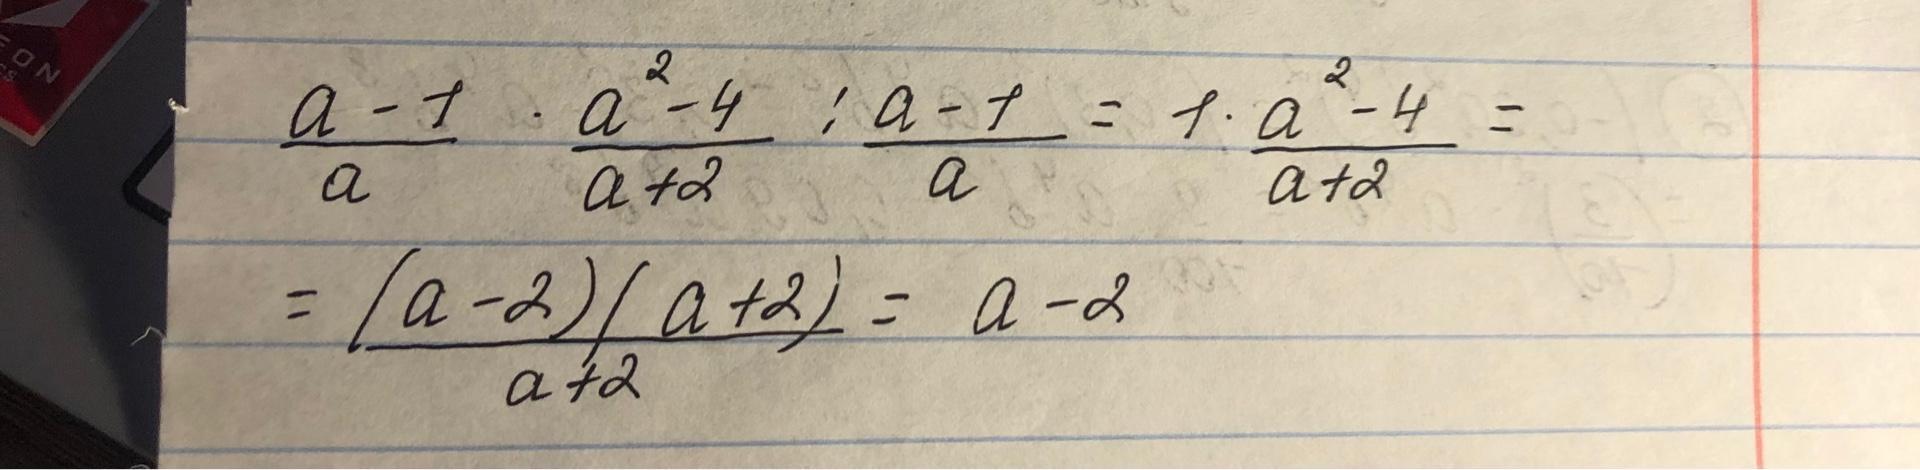 (a-1)/a · (a²-4)/(a+2) : (a-1)/a = 1 · (a²-4)/(a+2) =
= ((a-2)(a+2))/(a+2) = a-2